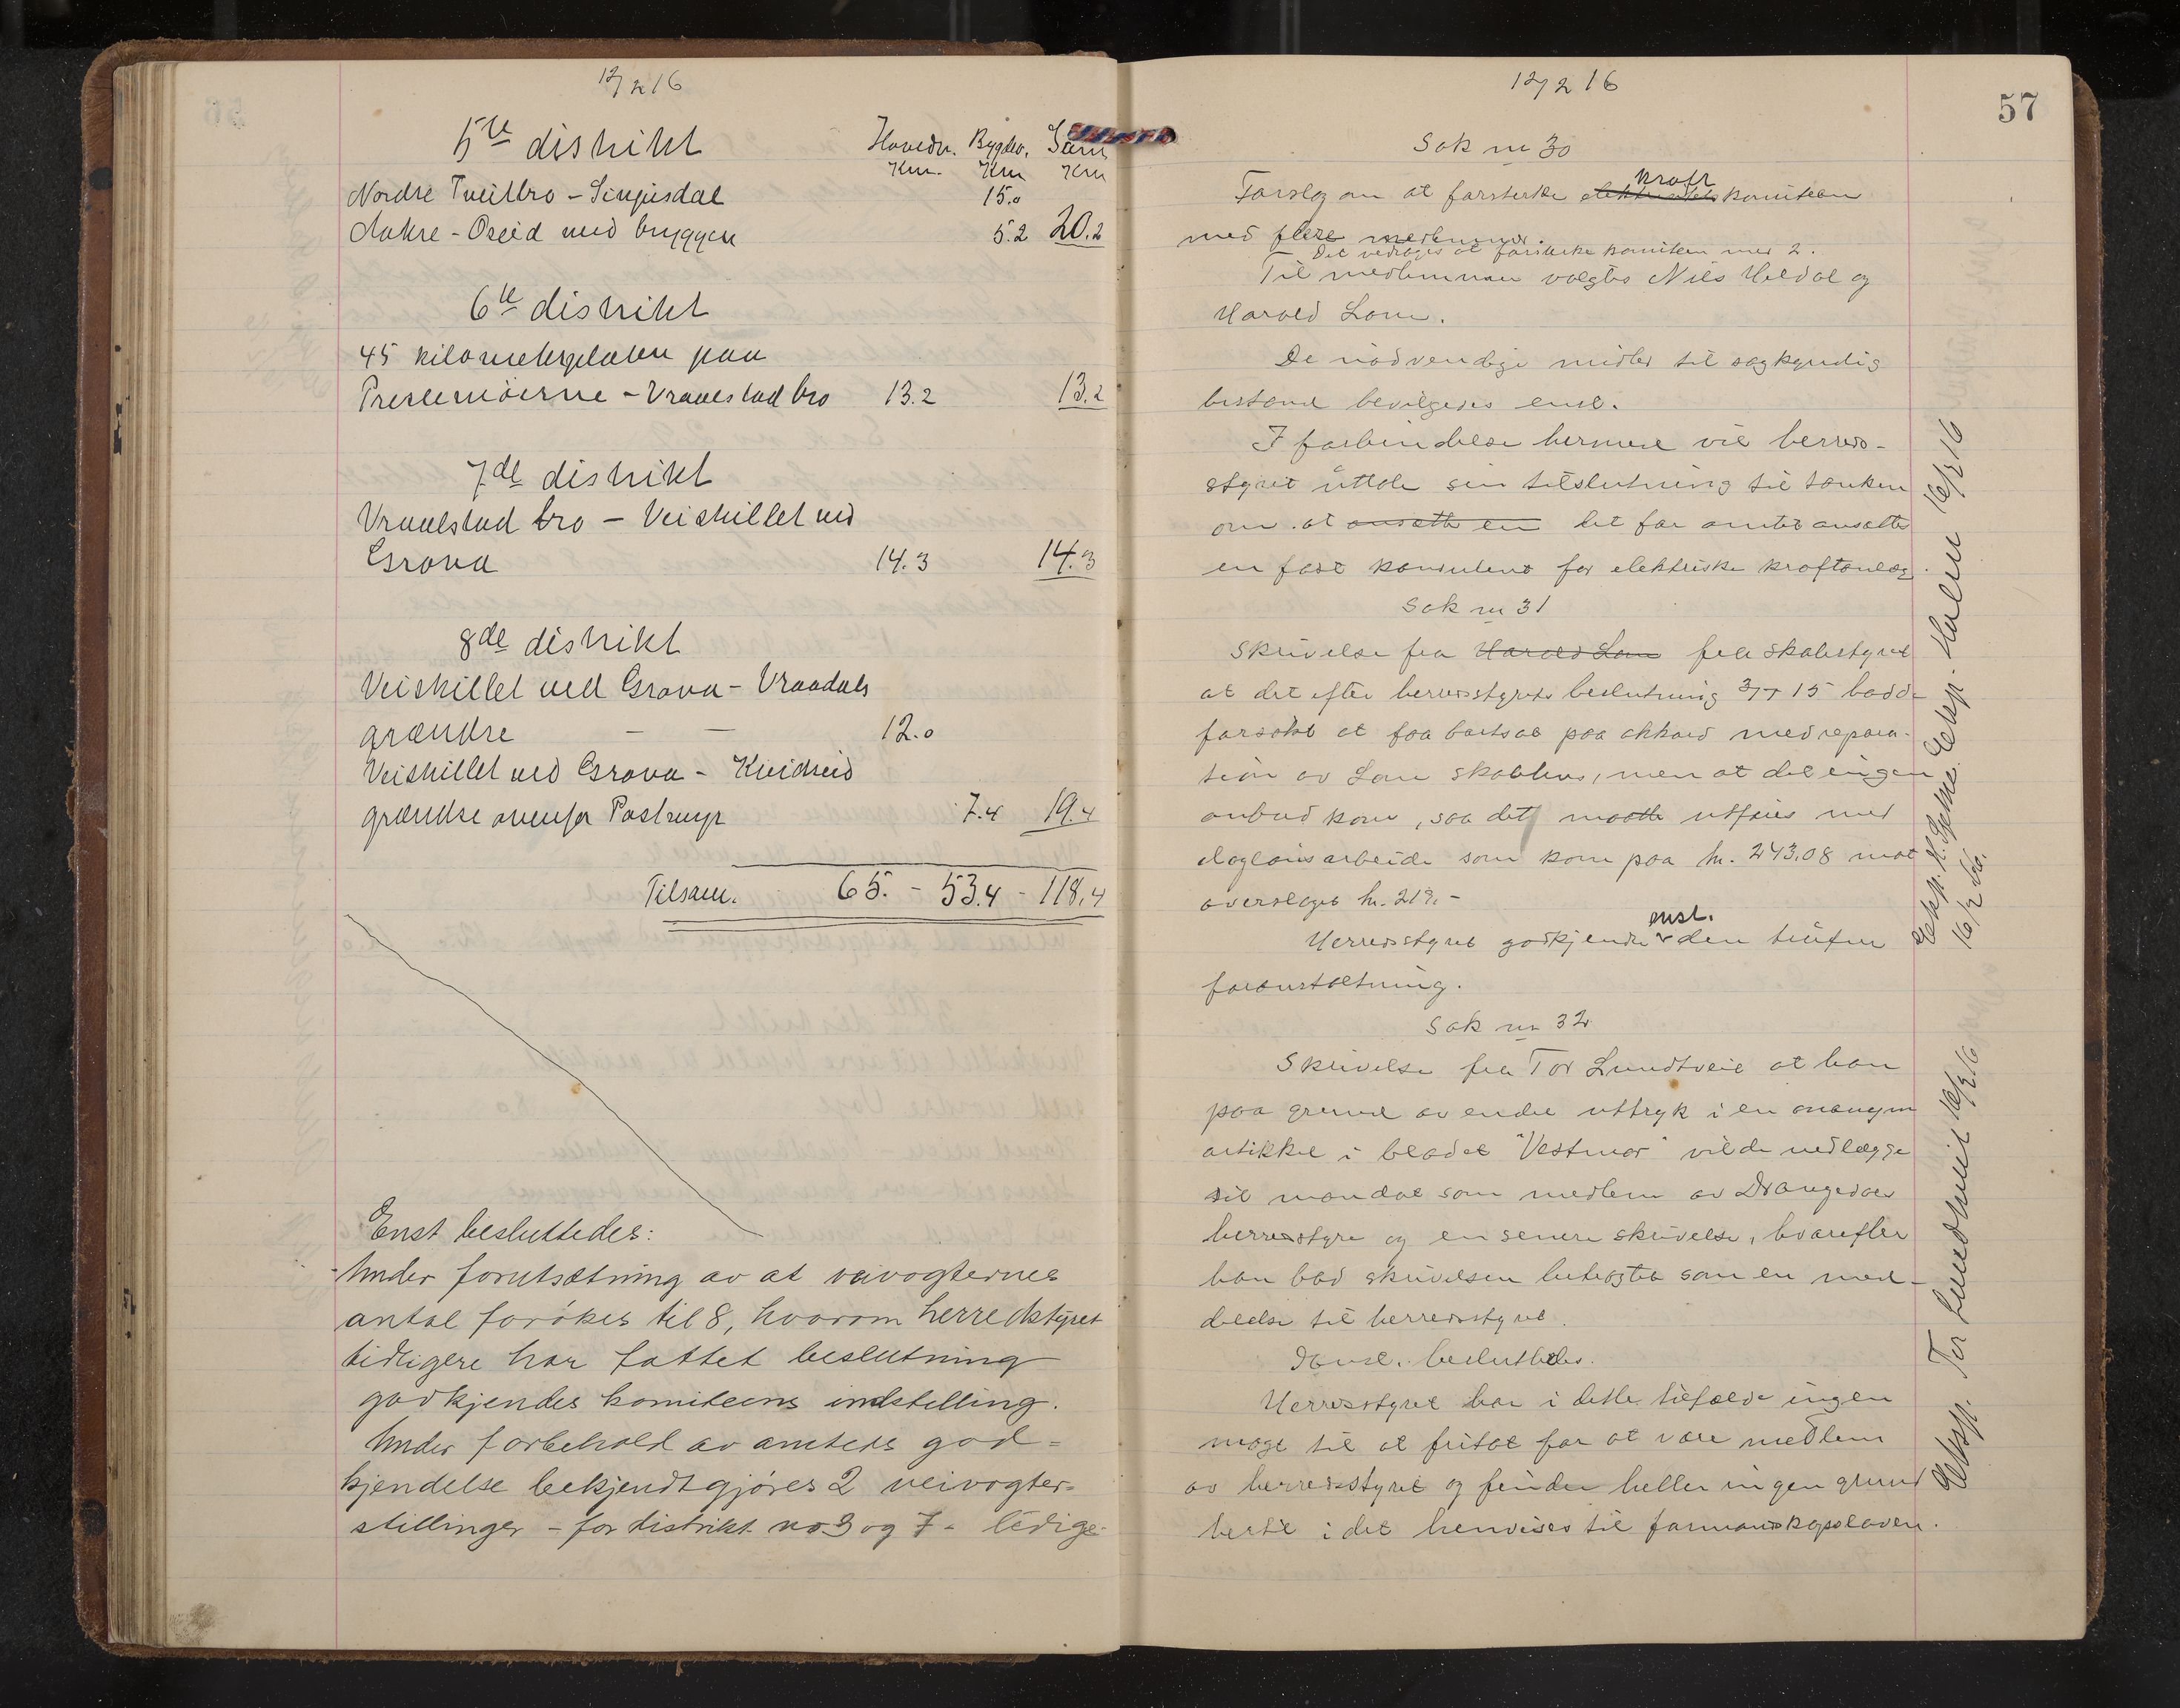 12/2 16
5te distrikt
Hovedv. Bygdev. Sum
Km. Km Km
Nordre Tveitbro - Sinnesdal 15.0
Aakre - Oseid med bryggen 5.2 20.2
6te distrikt
45 kilometerpælen paa
Preslemoierne - Vraalstad bro 13.2 13.2
7de distrikt
Vraalstad bro - Veiskillet ved
Grova 14.3 14.3
8de distrikt
Veiskillet ved Grova - Vraadals
grændse — — 12.0
Veiskillet ved Grova - Kviteseid
grændse ovenfor Postmyr 7.4 19.4
Tilsam. 65. - 53.4 - 118.4
Enst besluttedes:
Under forutsætning av at veivogternes
antal forökes til 8, hvorom herredstyret
tidligere har fattet beslutning
godkjendes komiteens indstilling.
Under forbehold av amtets god=
kjendelse bekjendtgjöres 2 veivogter=
stillinger - for distrikt no 3 og 7 - ledige.
12/2 16
57
Sak nr 30
Forslag om at forsterke elektricitets kraft komiteen
med flere medlemmer.
Det vedtoges at forsterke komiteen med 2.
Til medlemmer valgtes Nils Heldal og
Harald Lone.
De nödvendige midler til sagkyndig
bistand bevilgedes enst.
I forbindelse hermed vil herreds-
styret uttale sin tilslutning til tanken
om at ansætte en det for amtet ansættes
en fast konsulent for elektriske kraftanlæg.
Sak nr 31
Skrivelse fra Harald Lone fra skolestyret
at det efter herredsstyrets beslutning 15 hadde
forsökt at faa bortsat paa akkord med repara-
tion av Lone skolehus, men at det ingen
anbud kom, saa det maatte utföres med
daglönsarbeide som kom paa kr. 243.08 mot
overslaget kr. 213.-
Herredsstyret godkjendte enst. den trufne
foranstaltning.
Sak nr 32
Skrivelse fra Tor Lundtveit at han
paa grund av endel uttryk i en anonym
artikkel i bladet "Vestmar" vilde nedlægge
sit mandat som medlem av Drangedal
herredsstyre og en senere skrivelse, hvorefter
han bad skrivelsen betragtet som en med-
delelse til herredsstyret.
Som enst. besluttedes.
Herredsstyret har i dette tilfælde ingen
magt til at fritat for at være medlem
av herredsstyret og finder heller ingen grund
hertil i det henvises til formandskapsloven.
Eksp. N. Heldal. Eksp. 16/2 16
16/2 16.
Eksp. Tor Lundtveit 16/2 16